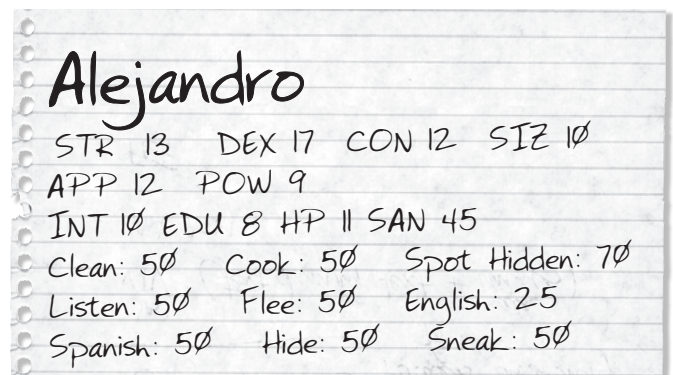 Alejandro
STR 13 DEX 17 CON 12 SIZ 10
APP 12 POW 9
INT 10 EDU 8 HP 11 SAN 45
Clean: 50 Cook: 50 Spot Hidden: 70
Listen: 50 Flee: 50 English: 25
Spanish: 50 Hide: 50 Sneak: 50